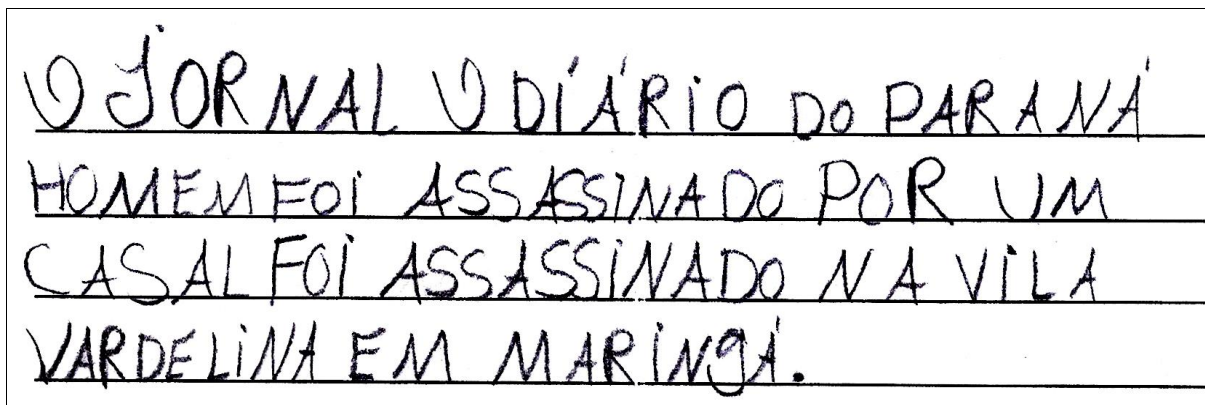 O JORNAL O DIÁRIO DO PARANÁ
HOMEM FOI ASSASSINADO POR UM
CASAL FOI ASSASSINADO NA VILA
VARDELINA EM MARINgÁ.